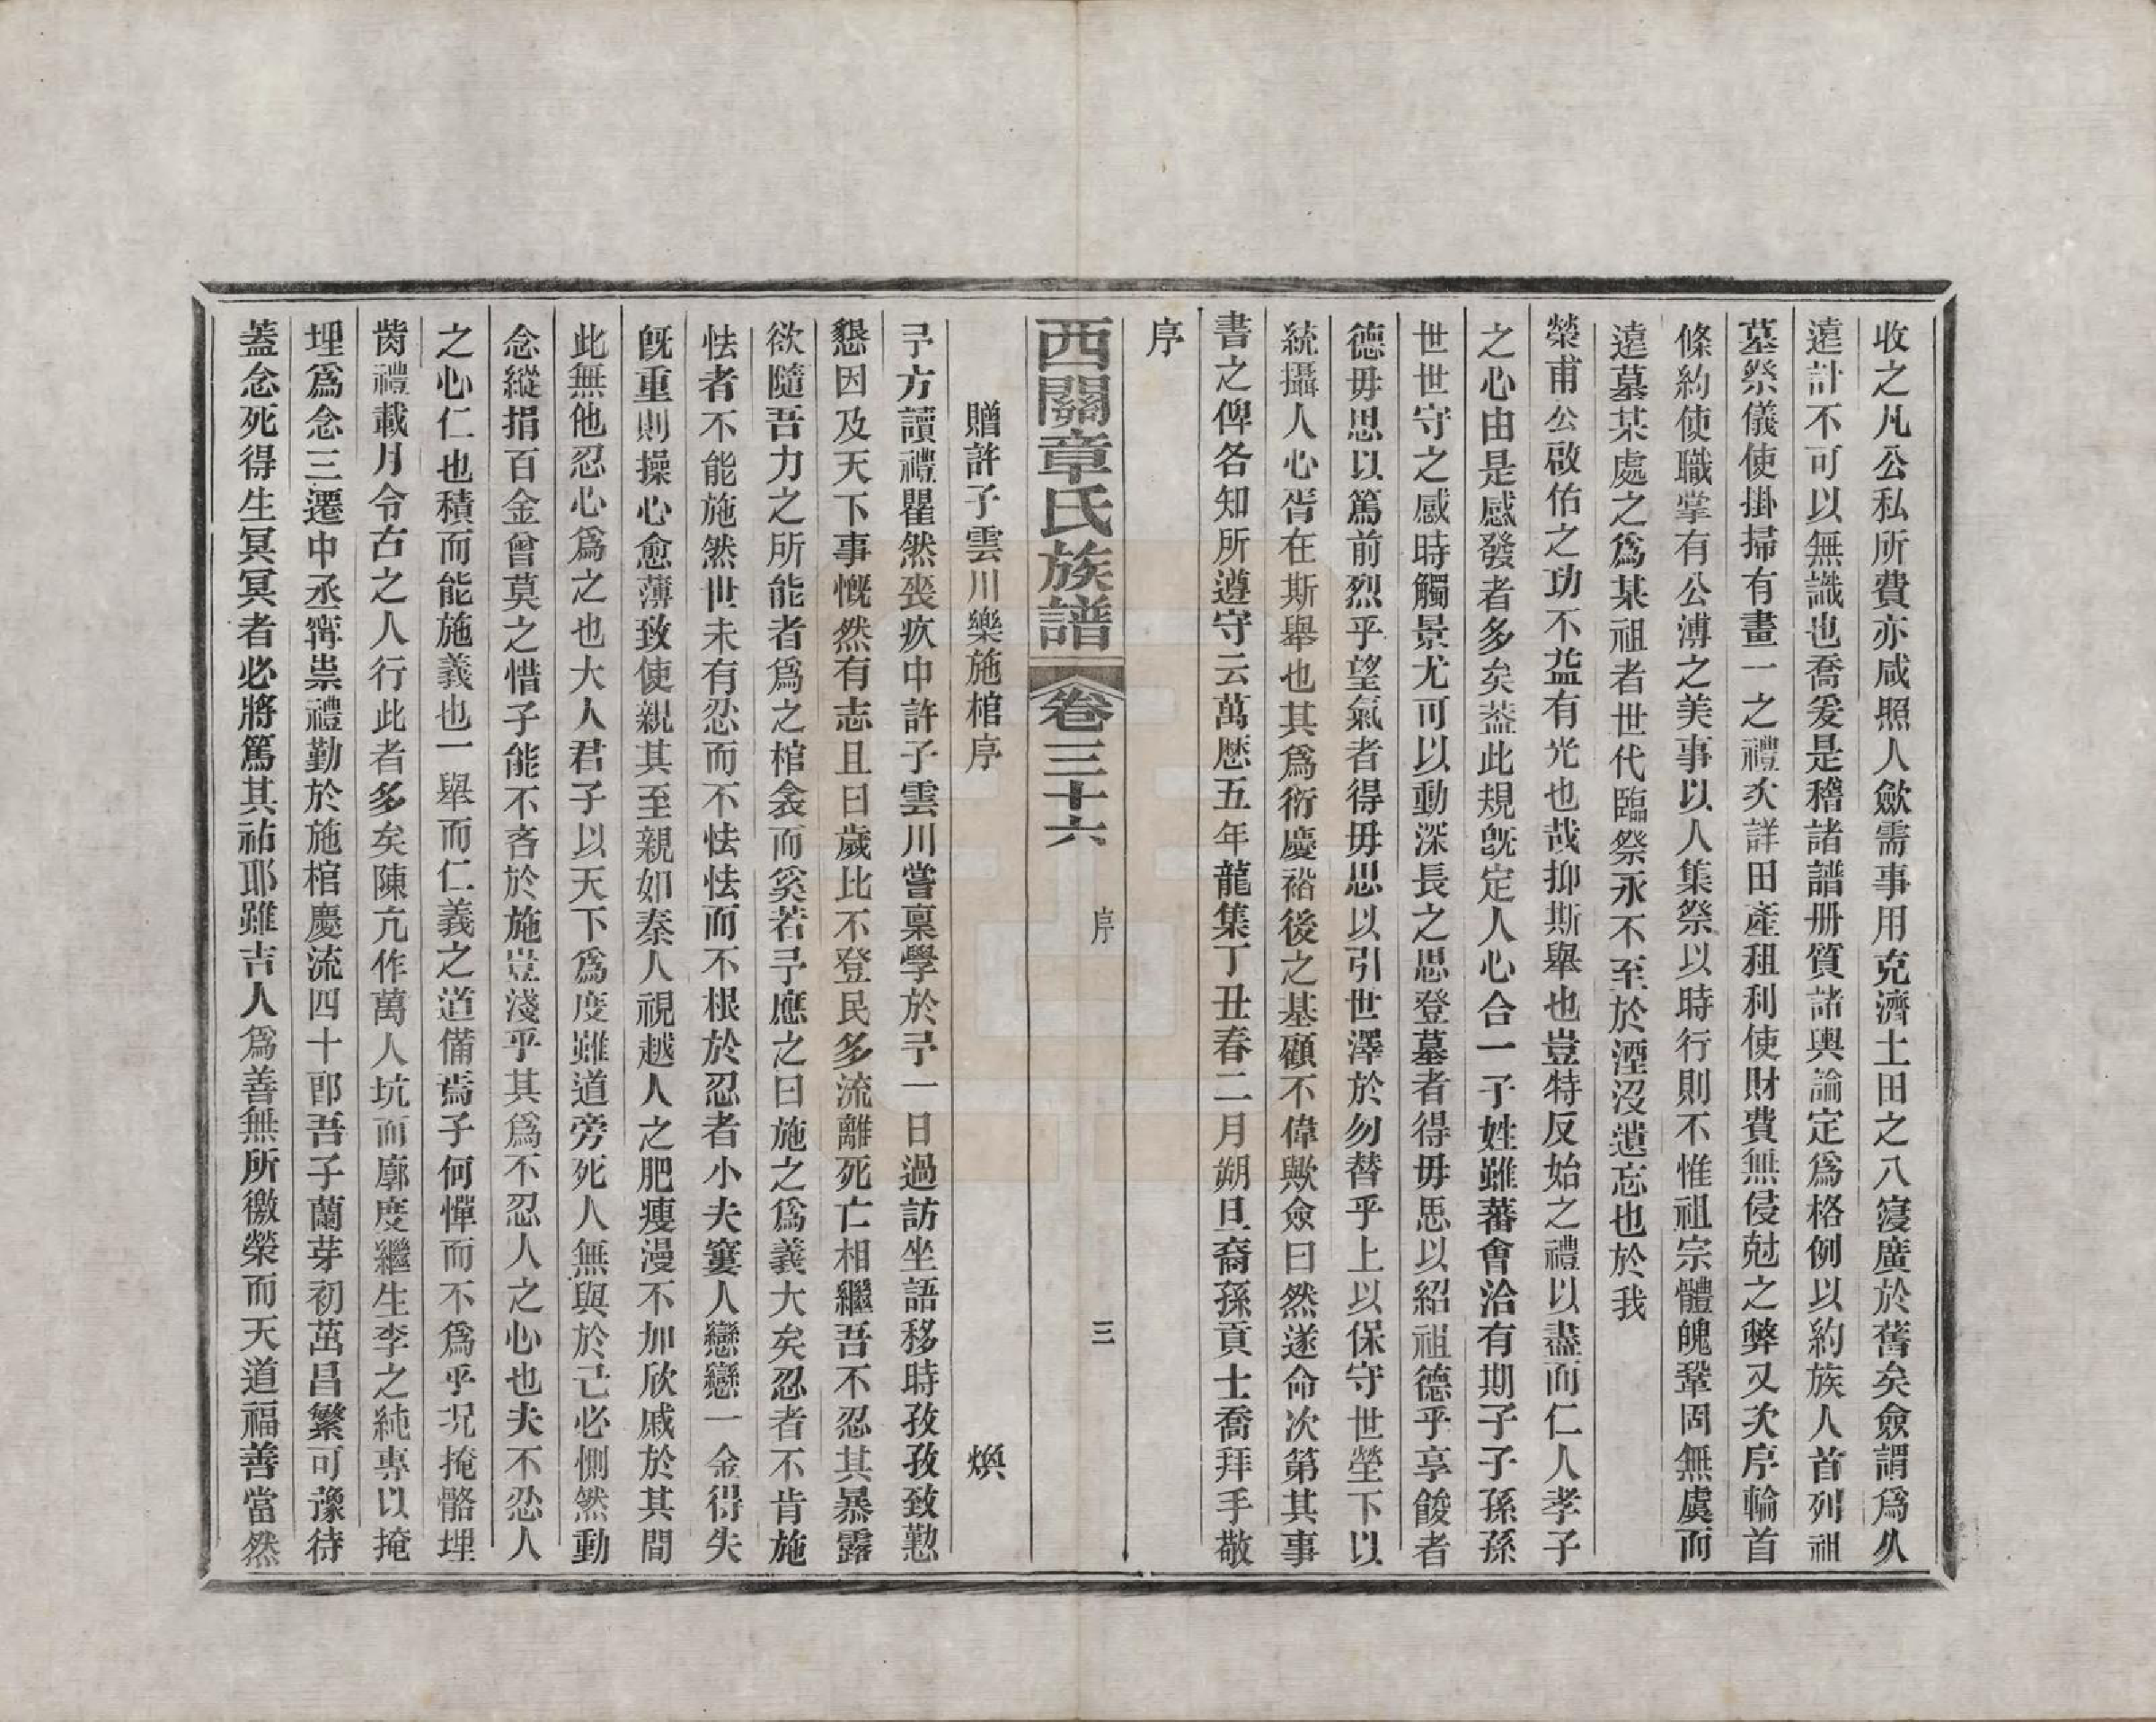 收之凡公私所費亦咸照人歛需事用克濟土田之入寖廣於舊矣僉謂爲久
遠計不可以無識也喬爰是稽諸譜册質諸輿論定爲格例以約族人首列祖
墓祭儀使掛掃有畫一之禮次詳田產租利使財費無侵尅之弊又次序輪首
條約使職掌有公溥之美事以人集祭以時行則不惟祖宗體魄鞏固無虞而
遠墓某處之爲某祖者世代臨祭永不至於湮沒遺忘也於我
榮甫公啟佑之功不益有光也哉抑斯舉也豈特反始之禮以盡而仁人孝子
之心由是感發者多矣蓋此規旣定人心合一子姓雖蕃會洽有期子子孫孫
世世守之感時觸景尤可以動深長之思登墓者得毋思以紹祖德乎享餕者
德毋思以篤前烈乎望氣者得毋思以引世澤於勿替乎上以保守世塋下以
統攝人心胥在斯舉也其爲衍慶裕後之基顧不偉歟僉曰然遂命次第其事
書之俾各知所遵守云萬歷五年龍集丁丑春二月朔旦裔孫貢士喬拜手敬
序
西關章氏族譜 卷三十六 序 三
贈許子雲川樂施棺序 煥
予方讀禮瞿然喪疚中許子雲川嘗稟學於予一日過訪坐語移時孜孜致懃
懇因及天下事慨然有志且曰歲比不登民多流離死亡相繼吾不忍其暴露
欲隨吾力之所能者爲之棺衾而奚若予應之曰施之爲義大矣忍者不肯施
怯者不能施然世未有忍而不怯怯而不根於忍者小夫窶人戀戀一金得失
旣重則操心愈薄致使親其至親如秦人視越人之肥瘦漫不加欣戚於其間
此無他忍心爲之也大人君子以天下爲度雖道旁死人無與於己必惻然動
念縱捐百金曾莫之惜子能不吝於施豈淺乎其爲不忍人之心也夫不忍人
之心仁也積而能施義也一舉而仁義之道備焉子何憚而不爲乎況掩骼埋
胔禮載月令古之人行此者多矣陳亢作萬人坑而廓度繼生李之純專以掩
埋爲念三遷中丞甯祟禮勤於施棺慶流四十郎吾子蘭芽初茁昌繁可豫待
蓋念死得生冥冥者必將篤其祐耶雖吉人爲善無所徼榮而天道福善當然